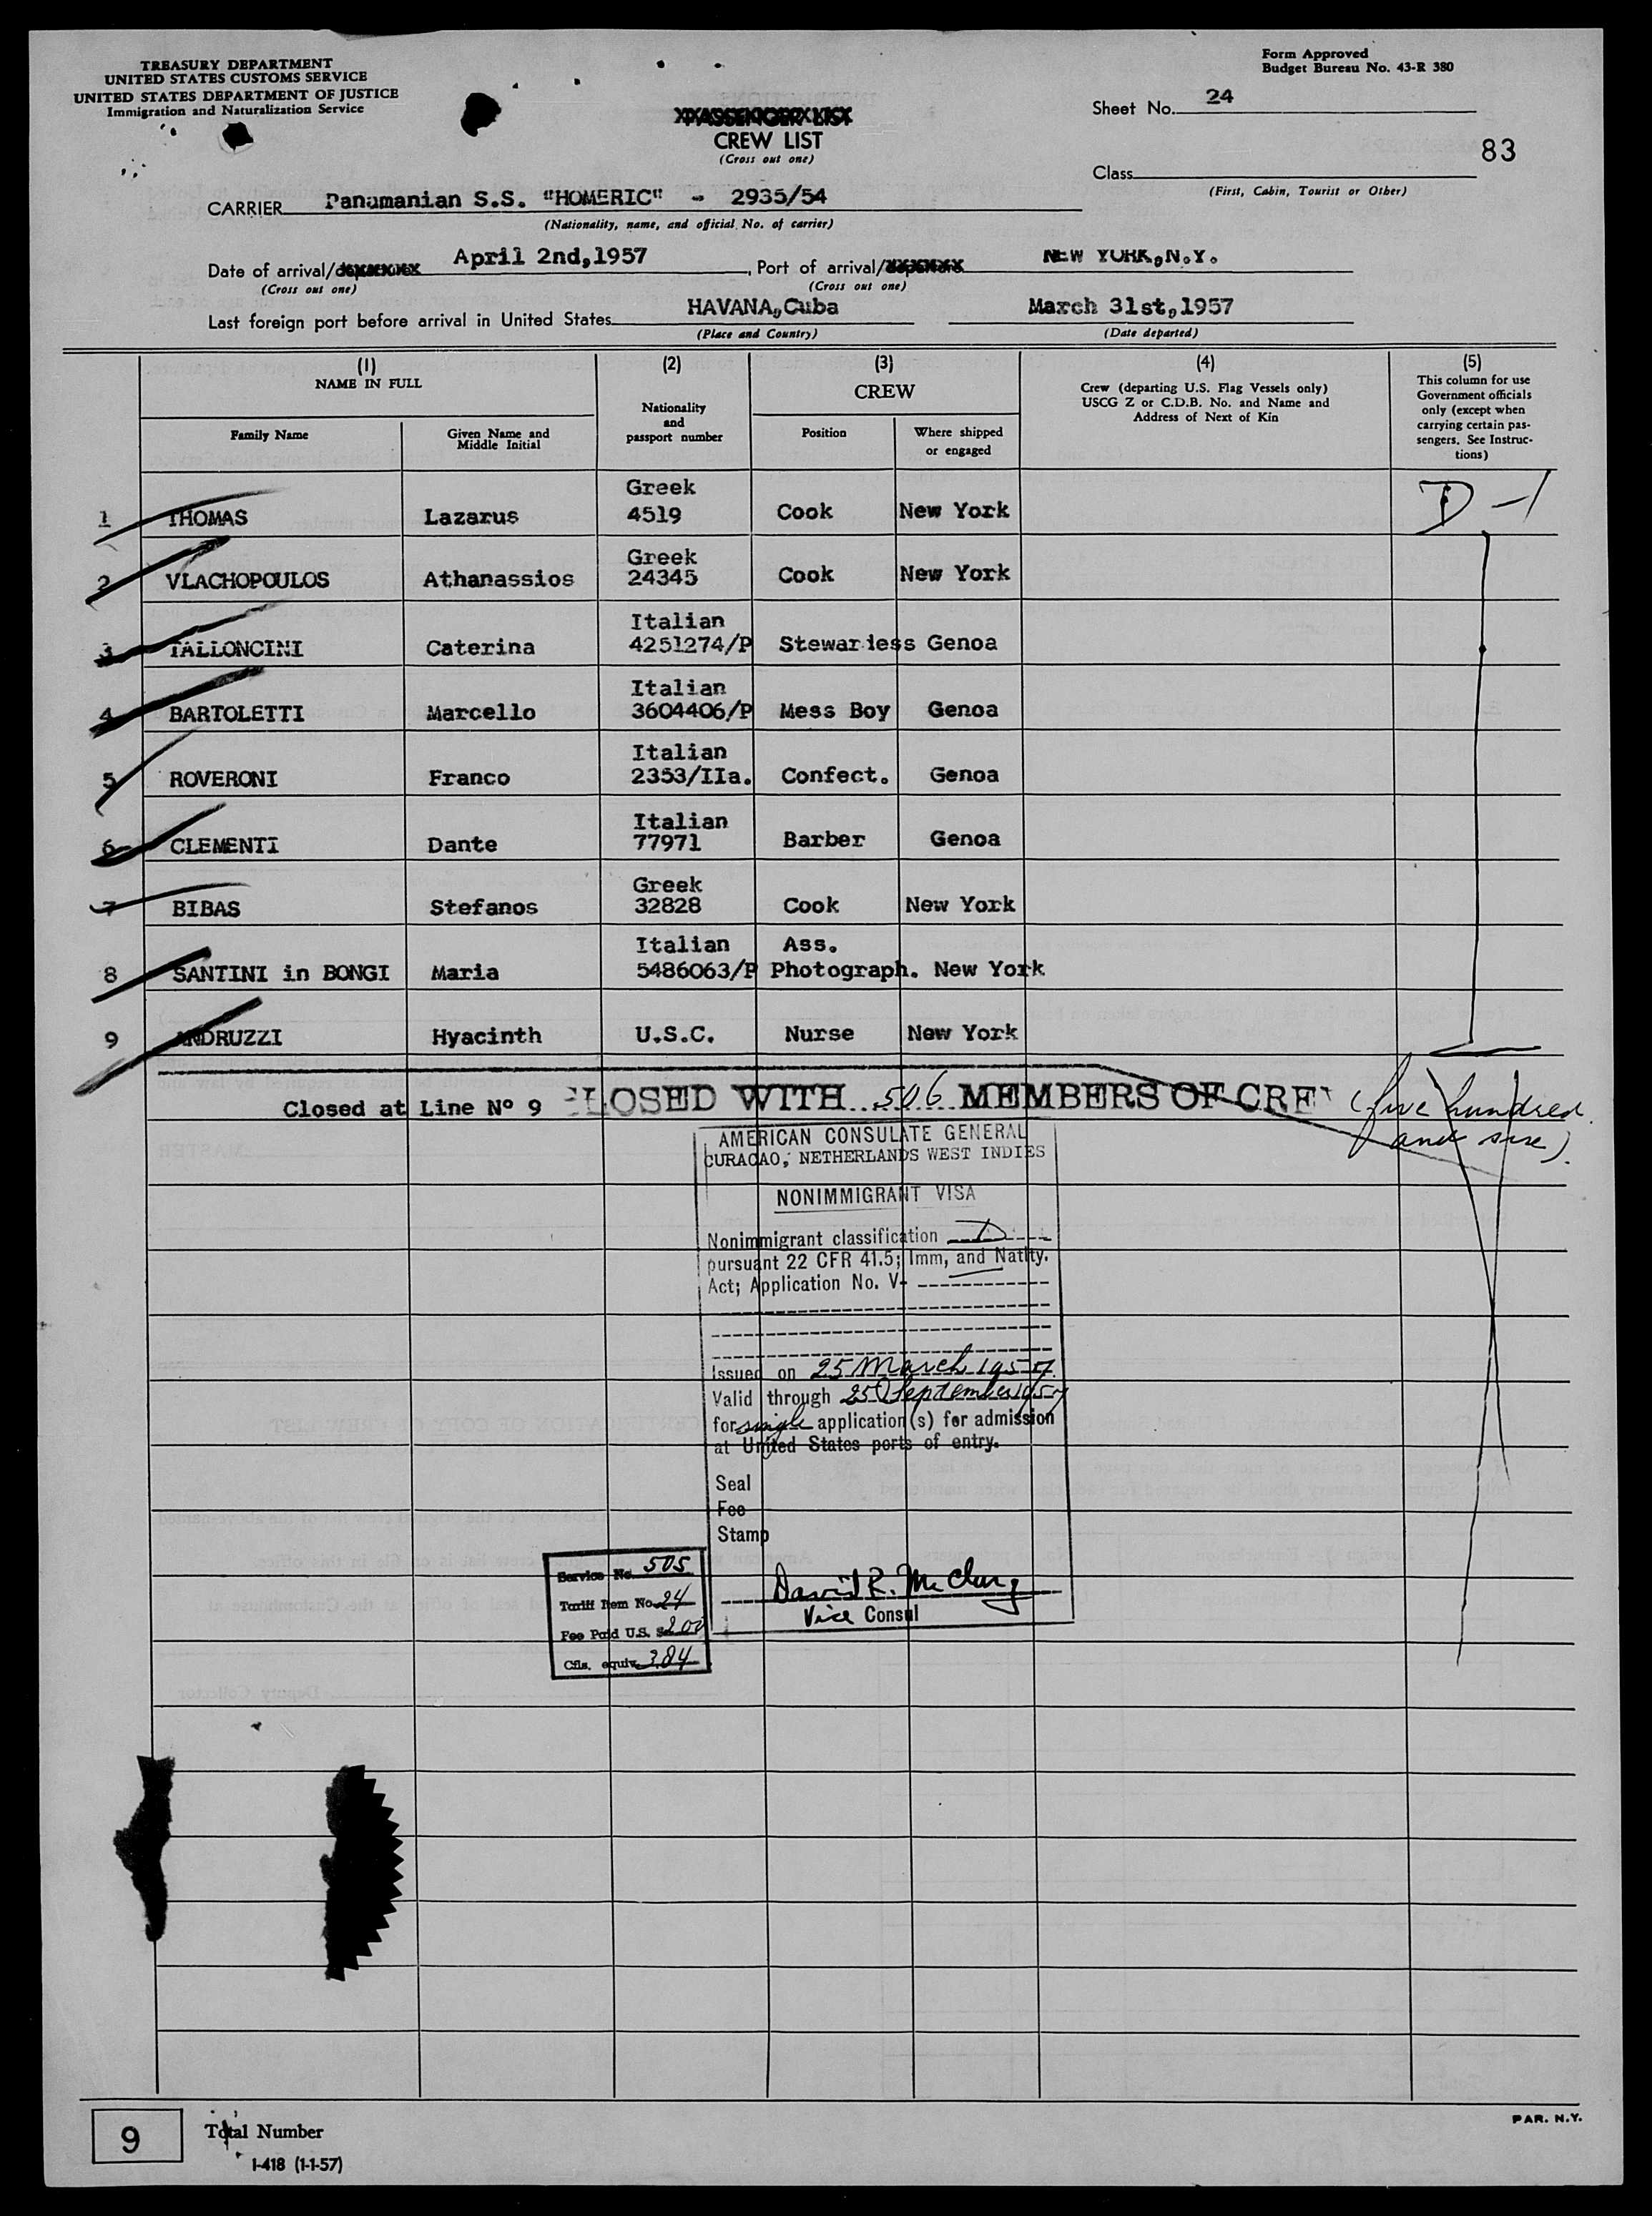 TREASURY DEPARTMENT
UNITED STATES CUSTOMS SERVICE
UNITED STATES DEPARTMENT OF JUSTICE
Immigration and Naturalization Service
Form Approved
Budget Bureau No. 43-R 380
PASSENGER LIST
CREW LIST
(Cross out one)
Sheet No. 24
83
Class
(First, Cabin, Tourist or Other)
CARRIER Panamanian S.S. "HOMERIC" - 2935/54
(Nationality, name, and official No. of carrier)
Date of arrival/departure April 2nd,1957, Port of arrival/departure NEW YORK,N.Y.
(Cross out one) (Cross out one)
Last foreign port before arrival in United States HAVANA,Cuba March 31st,1957
(Place and Country) (Date departed)
(1) NAME IN FULL
Family Name
Given Name and Middle Initial
(2)
Nationality and passport number
(3)
CREW
Position
Where shipped or engaged
(4)
Crew (departing U.S. Flag Vessels only)
USCG Z or C.D.B. No. and Name and
Address of Next of Kin
(5)
This column for use
Government officials
only (except when
carrying certain pas-
sengers. See Instruc-
tions)
1 THOMAS Lazarus Greek 4519 Cook New York D-1
2 VLACHOPOULOS Athanassios Greek 24345 Cook New York
3 TALLONCINI Caterina Italian 4251274/P Stewardess Genoa
4 BARTOLETTI Marcello Italian 3604406/P Mess Boy Genoa
5 ROVERONI Franco Italian 2353/IIa. Confect. Genoa
6 CLEMENTI Dante Italian 77971 Barber Genoa
7 BIBAS Stefanos Greek 32828 Cook New York
8 SANTINI in BONGI Maria Italian 5486063/P Ass. Photograph. New York
9 ANDRUZZI Hyacinth U.S.C. Nurse New York
Closed at Line Nº 9 CLOSED WITH 506 MEMBERS OF CREW (five hundred
and six).
AMERICAN CONSULATE GENERAL
CURACAO, NETHERLANDS WEST INDIES
NONIMMIGRANT VISA
Nonimmigrant classification D
pursuant 22 CFR 41.5; Imm, and Natlty.
Act; Application No. V-
Issued on 25 March 1957
Valid through 25 September 1957
for single application(s) for admission
at United States ports of entry.
Seal
Fee
Stamp
David R. McClurg
Vice Consul
Service No. 505
Tariff Item No. 24
Fee Paid U.S. $2.00
Cfls. equiv. 3.84
9 Total Number
I-418 (1-1-57)
PAR. N.Y.